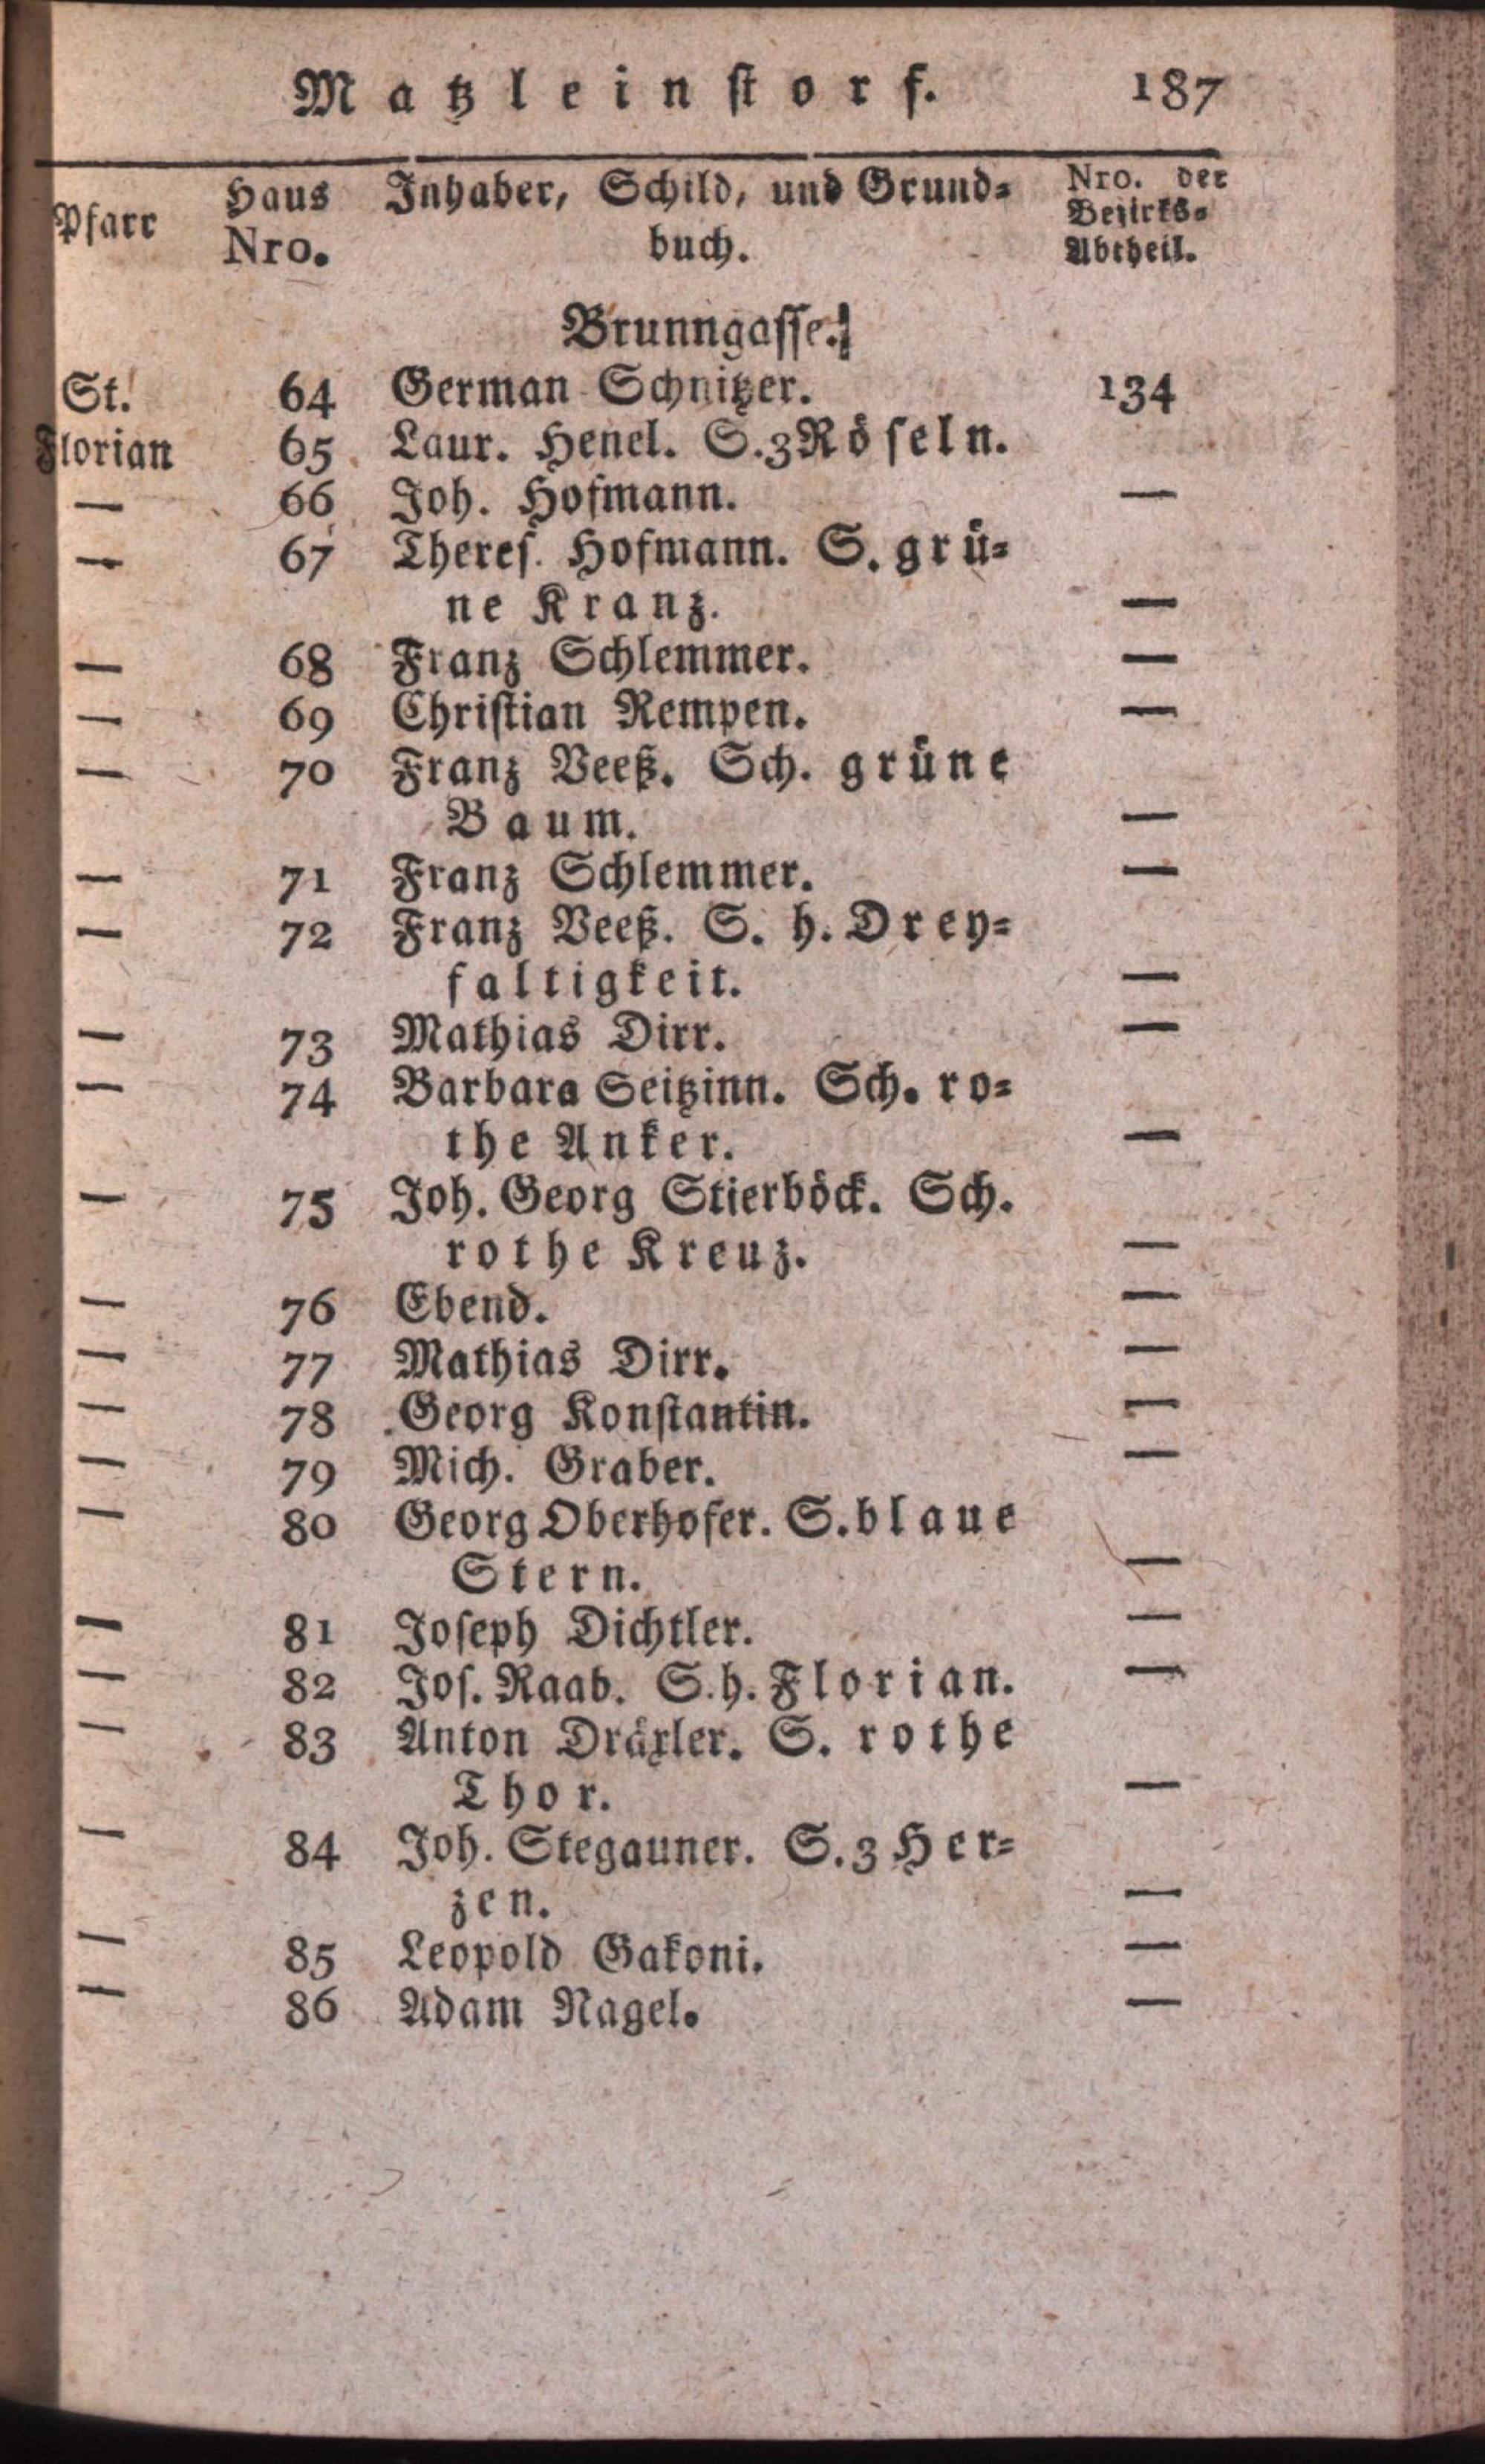 Matzleinstorf. 187
Pfarr Haus Nro. Inhaber, Schild, und Grund- buch. Nro. der Bezirks- Abtheil.
Brunngasse.
St. 64 German Schnitzer. 134
Florian 65 Laur. Henel. S. 3 Röseln.
— 66 Joh. Hofmann. —
— 67 Theres. Hofmann. S. grü-
ne Kranz. —
— 68 Franz Schlemmer. —
— 69 Christian Rempen. —
— 70 Franz Veeß. Sch. grüne
Baum. —
— 71 Franz Schlemmer. —
— 72 Franz Veeß. S. h. Drey-
faltigkeit. —
— 73 Mathias Dirr. —
— 74 Barbara Seitzinn. Sch. ro-
the Anker. —
— 75 Joh. Georg Stierböck. Sch.
rothe Kreuz. —
— 76 Ebend. —
— 77 Mathias Dirr. —
— 78 Georg Konstantin. —
— 79 Mich. Graber. —
— 80 Georg Oberhofer. S. blaue
Stern. —
— 81 Joseph Dichtler. —
— 82 Jos. Raab. S. h. Florian. —
— 83 Anton Dräxler. S. rothe
Thor. —
— 84 Joh. Stegauner. S. 3 Her-
zen. —
— 85 Leopold Gakoni. —
— 86 Adam Nagel. —